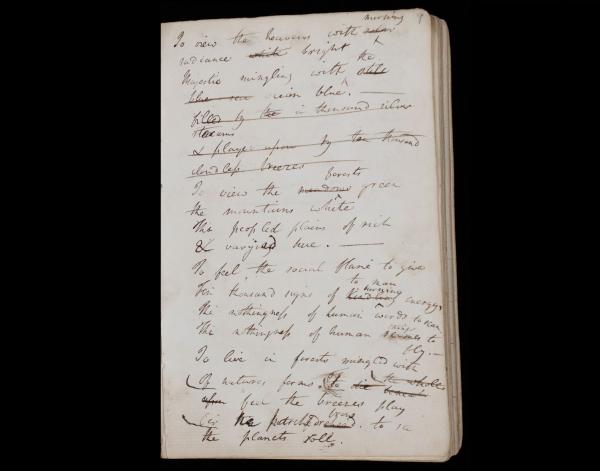 morning
To view the heavens with solar
radiance white bright the
Majestic mingling with
blue sea ocean blue. —
filled by the in a thousand silver
streams
& plays upon by ten thousand
cloudless breezes
forests
To view the meadows green
the mountains white
The peopled plains of rich
& varying hue. —
To feel the social flame to give
to man
Ten thousand signs of burning energy
kindling
The nothingness of human words to scan
The nothingness of human to
fly. —
To live in forests mingled with
Of natures forms to die the whole
upon feel the breezes play
the to
the planets roll.